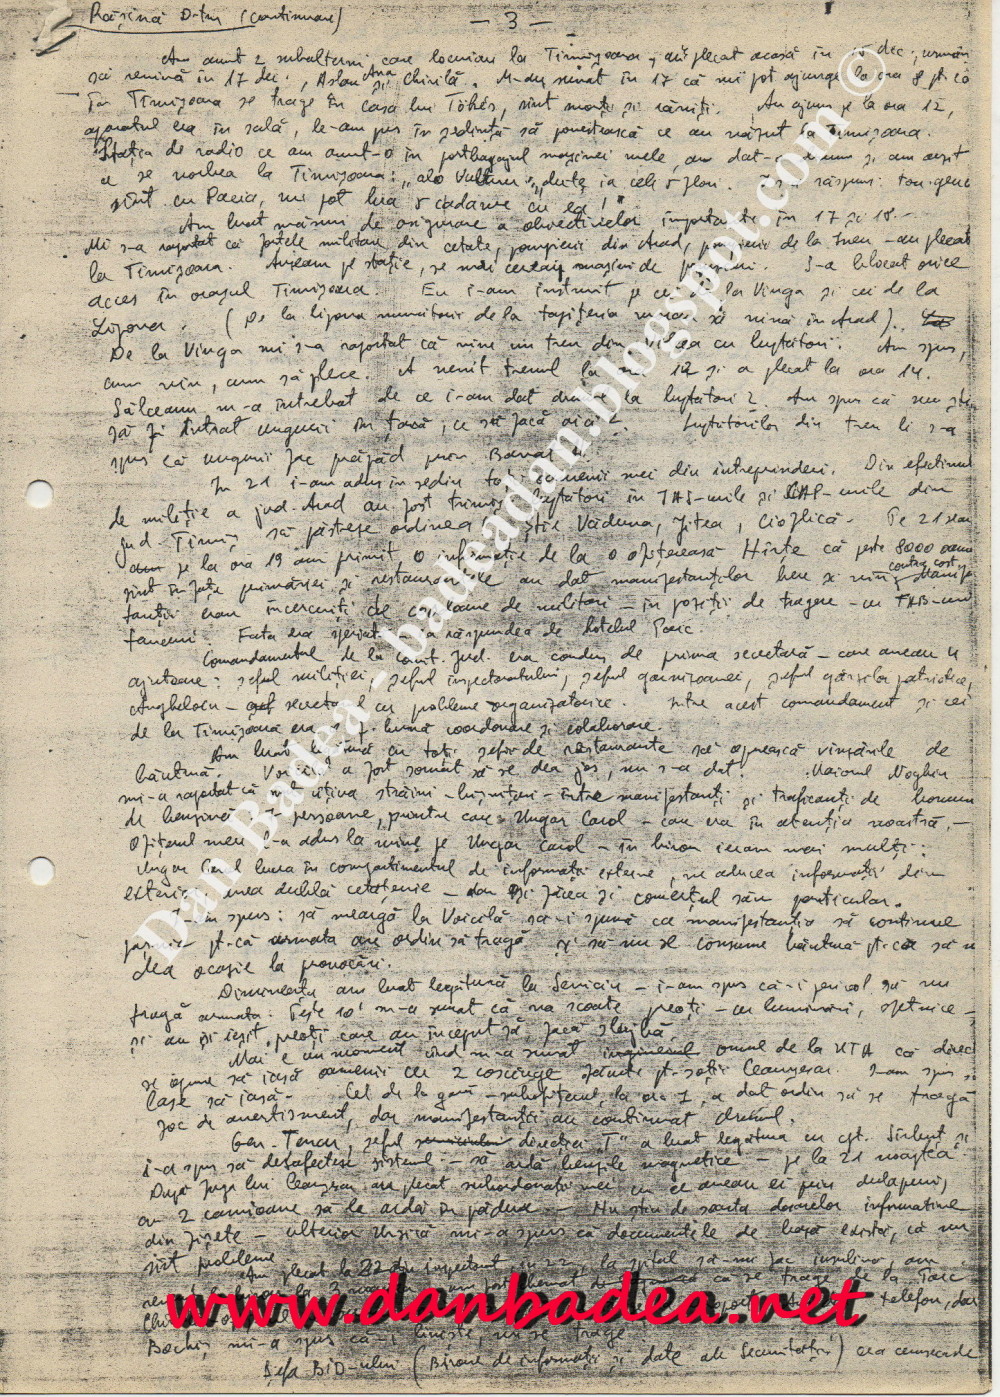 Rășină D-tru (continuare) — 3 —
Am avut 2 subalterni, care locuiau la Timișoara, au plecat acasă în 15 dec.,
să revină în 17 dec., Aslau Ana și Chirilă. M-au sunat în 17 că nu pot ajunge la ora 8 pt. că
în Timișoara se trage în casa lui Tökés, sînt morți și răniți. Au ajuns pe la ora 12,
aparatul era în sală, le-am pus în ședință să povestească ce au văzut la Timișoara.
Stația de radio ce am avut-o în portbagajul mașinei mele, am dat- și am auzit
ce se vorbea la Timișoara: „alo Vulturu", „du-te ia cele 5 flori. răspuns:
sînt cu Dacia, nu pot lua 5 cadavre cu ea!"
Am luat măsuri de asigurare a obiectivelor importante în 17 și 18.-
Mi s-a raportat că forțele militare din cetate, pompierii din Arad, pompierii de la Ineu - au plecat
la Timișoara. Auzeam pe stație, se mai cereau mașini de pompieri. S-a blocat orice
acces în orașul Timișoara. Eu i-am instruit pe cei de la Vinga și cei de la
Lipova. (De la Lipova muncitorii de la tapițeria să vină în Arad).
De la Vinga mi s-a raportat că vine un tren din Vîlcea cu luptători. Am spus,
cum vin, cum să plece. A venit trenul la ora 12 și a plecat la ora 14.
Sălceanu m-a întrebat de ce i-am dat drumul la luptători? Am spus că nu știu
să fi intrat ungurii în țară, ce să facă aici? Luptătorilor din tren li s-a
spus că ungurii fac prăpăd prin Banat".
În 21 i-am adus în sediu toți oamenii mei din întreprinderi. Din efectivul
de miliție a jud. Arad au fost trimiși luptători în IAS-urile și CAP-urile din
jud. Timiș, să păstreze ordinea știe Văduva, Jitea, Cioflică. Pe 21 seara
pe la ora 19 am primit o informație de la o ofițereasă Hîrte că peste 8000 oameni
sînt în fața primăriei și restaurantele au dat manifestanților bere și vin contra cost. Manifes-
tanții erau încercuiți de cordoane de militari - în poziții de tragere - cu TAB-uri
tancuri. Fata era speriată, ea răspundea de hotelul Parc.
Comandamentul de la Comit. Jud. era condus de prima secretară - care aveau
ajutoare: șeful miliției, șeful inspectoratului, șeful garnizoanei, șeful gărzilor patriotice,
Anghelescu - secretarul cu probleme organizatorice. Între acest comandament și cei
de la Timișoara era o f. bună coordonare și colaborare.
Am luat legătura cu toți șefii de restaurante să oprească vînzările de
băutură. Voicilă a fost somat să se dea jos, nu s-a dat. Maiorul Moghin
mi-a raportat că sînt cîțiva străini - bișnițari - între manifestanți și traficanți de bonuri
de benzină. 7 persoane, printre care Ungar Carol - care era în atenția noastră.-
Ofițerul meu l-a adus la mine pe Ungar Carol - în birou eram mai mulți:
Ungar Carol lucra în compartimentul de informații externe, ne aducea informații din
exterior, avea dublă cetățenie - dar își făcea și comerțul său particular.
I-am spus: să meargă la Voicilă să-i spună ca manifestanția să continue
pașnic pt. că armata are ordin să tragă și să nu se consume băutură pt. ca să nu
dea ocazie la provocări.
Dimineața am luat legătură la Serviciu - i-am spus că-i pericol să nu
tragă armata. Peste 10' m-a sunat că va scoate preoți - cu luminări, sfetnice -
și au și ieșit, preoți care au început să facă slujbă.
Mai e un moment cînd m-a sunat omul de la UTA că direc
se opune să iasă oamenii cu 2 coșciuge făcute pt. soții Ceaușescu. I-am spus să
lase să iasă. Cel de la gară - subofițerul, la ora 7, a dat ordin să se tragă
foc de avertisment, dar manifestanții au continuat drumul.
Gen. Tencu, șeful direcția „T" a luat legătura cu cpt. Sîrbuț și
i-a spus să dezafecteze sistemul - să ardă benzile magnetice - pe la 21 noaptea.
După fuga lui Ceaușescu au plecat subordonații mei cu ce aveau ei prin dulapuri,
cu 2 camioane să le ardă în pădure - Nu știu de soarta dosarelor informative
din fișete - ulterior Ursică mi-a spus că documentele de bază există, că nu
sînt probleme.
Am plecat la 22 din inspectorat în 22, la spital să-mi fac insulina, am
că se trage de la Parc
telefon, dar
Bochiș mi-a spus că-i liniște, nu se trage.
Șefa BID-ului (Biroul de informații și date ale Securității) era cumnata de
Dan Badea - badeadan.blogspot.com ©
www.danbadea.net